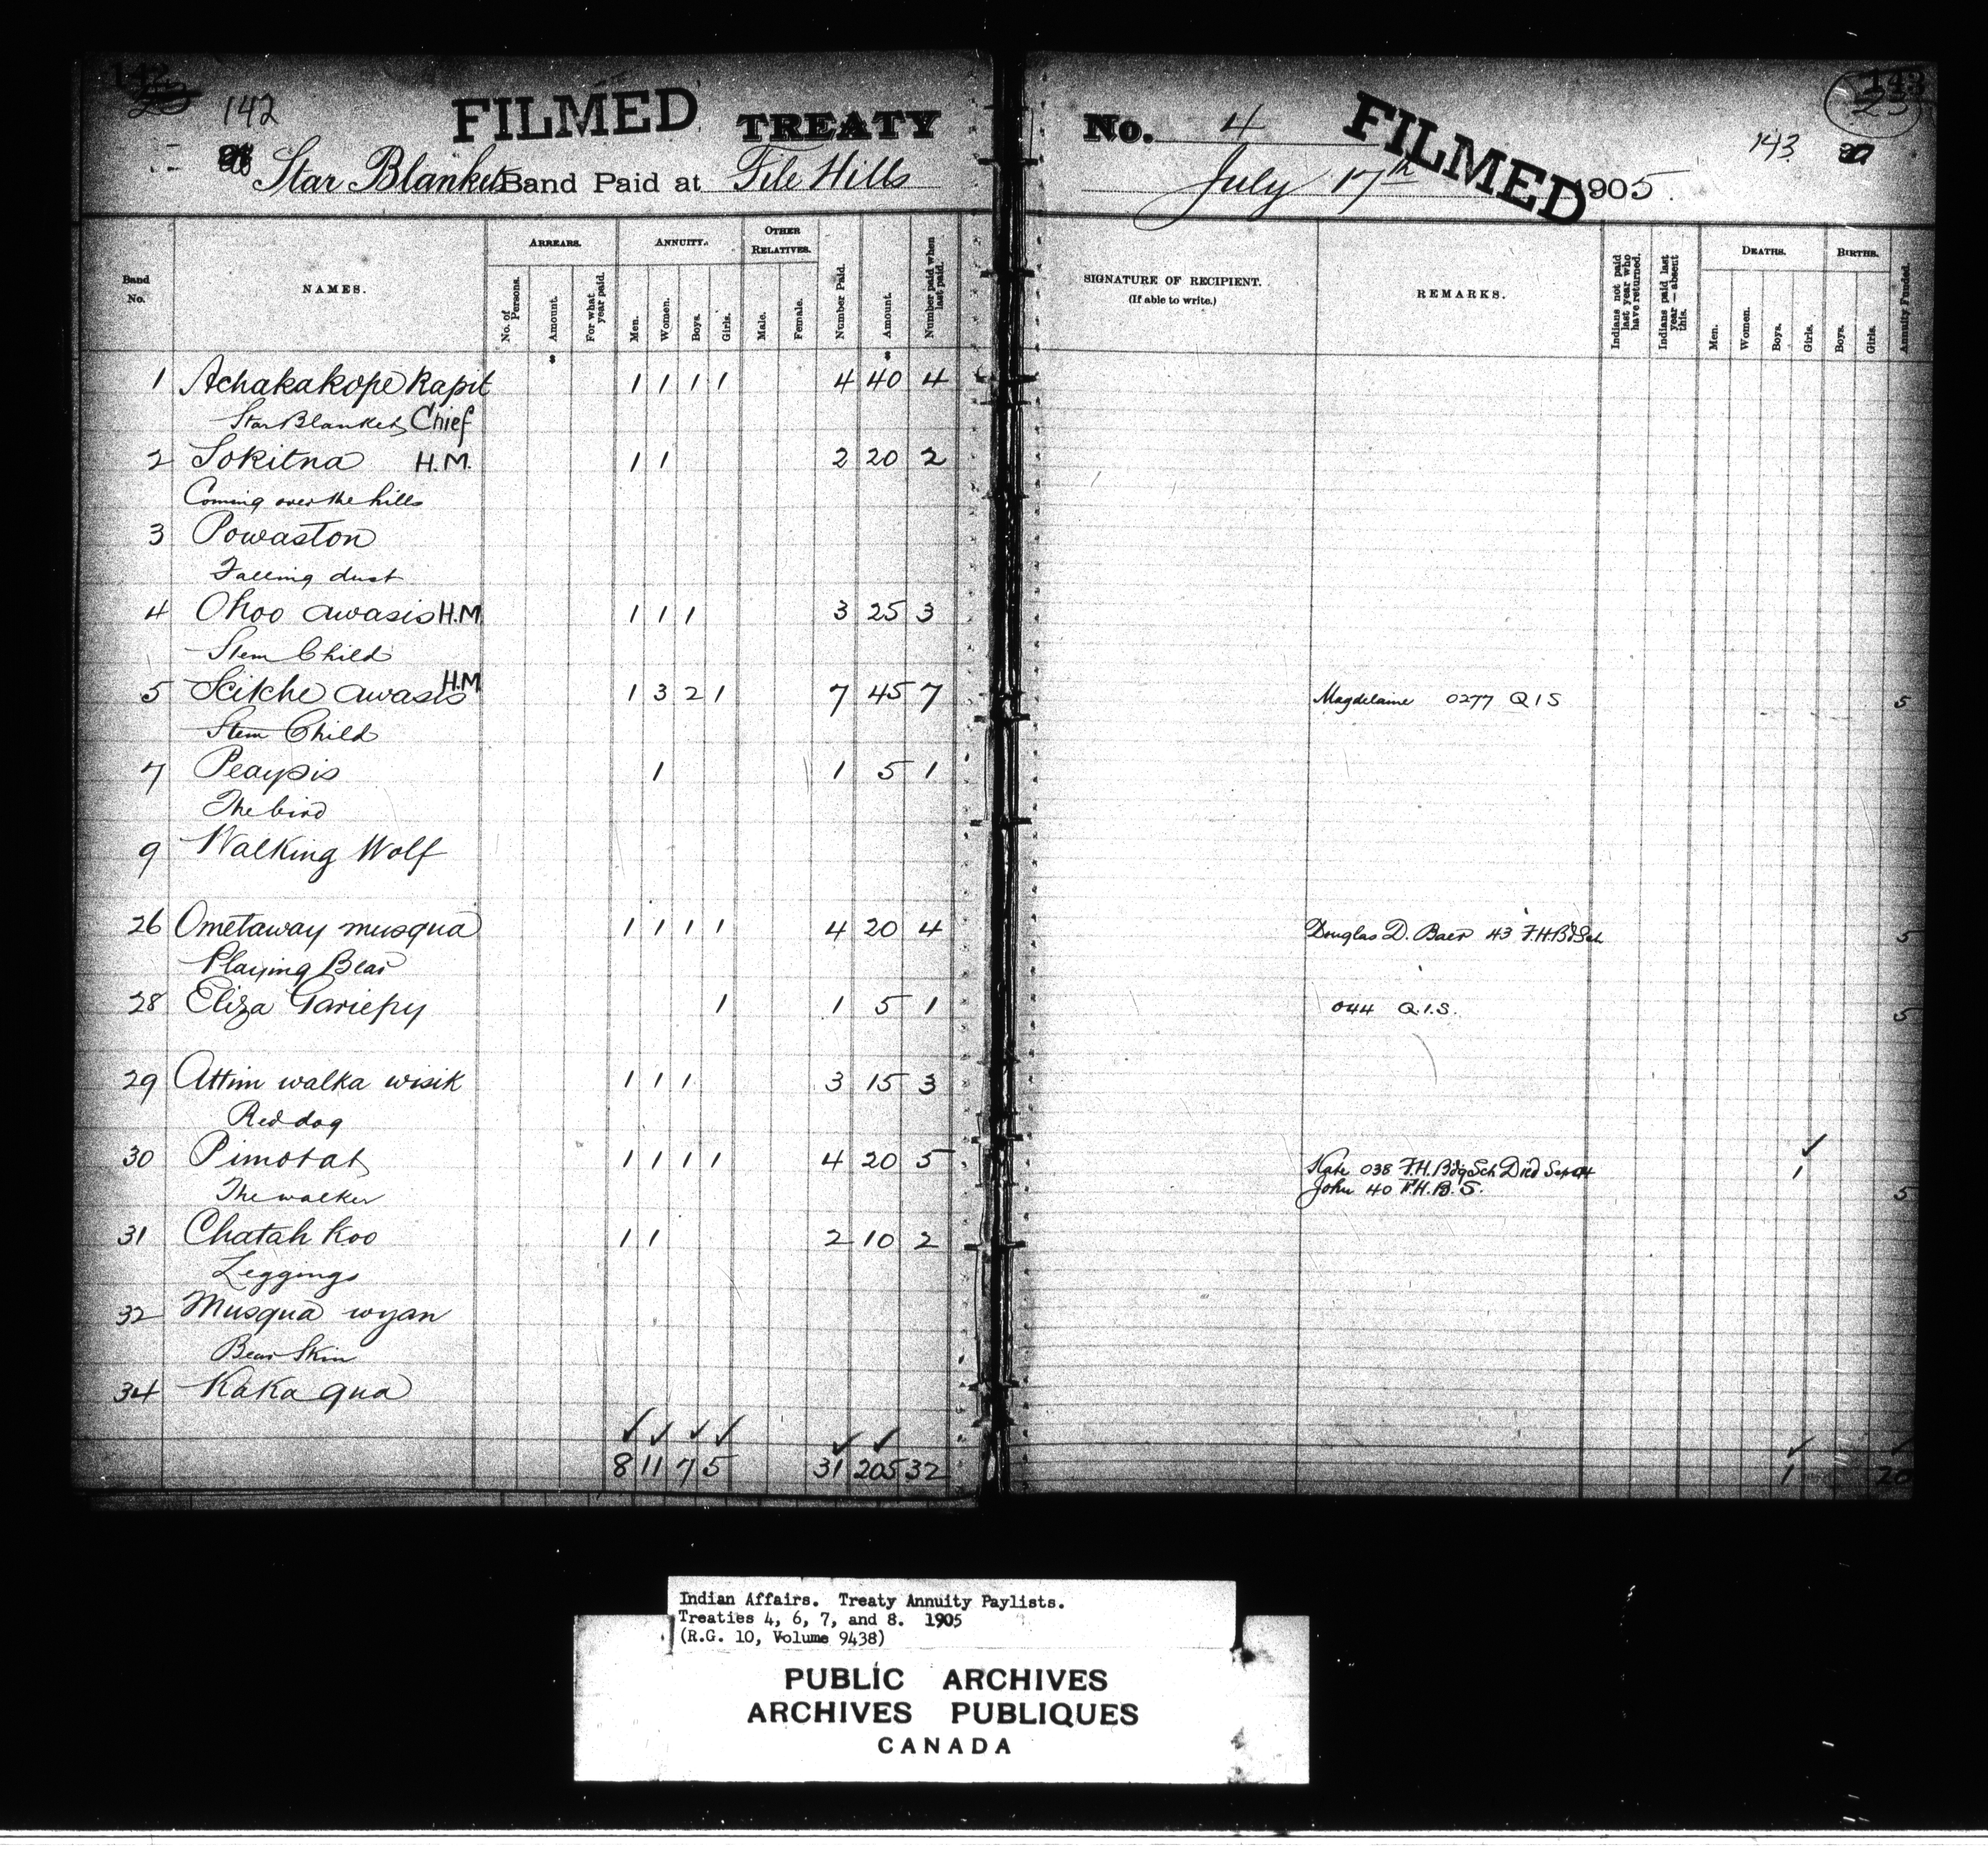 142
142
FILMED TREATY No. 4 FILMED
143
143
23
Star Blankets Band Paid at File Hills July 17th 1905
Band No.
NAMES.
ARREARS.
No. of Persons.
Amount.
For what year paid.
ANNUITY.
Men.
Women.
Boys.
Girls.
OTHER RELATIVES.
Male.
Female.
Number Paid.
Amount.
Number paid when last paid.
SIGNATURE OF RECIPIENT.
(If able to write.)
REMARKS.
Indians not paid last year who have returned.
Indians paid last year—absent this.
DEATHS.
Men.
Women.
Boys.
Girls.
BIRTHS.
Boys.
Girls.
Annuity Funded.
1 Achakakope Kapit 1 1 1 1 4 40 4
Star Blanket Chief
2 Sokitna H.M. 1 1 2 20 2
Coming over the hills
3 Powaston
Falling dust
4 Ohoo awasis H.M. 1 1 1 3 25 3
Stem Child
5 Scitche awasis H.M 1 3 2 1 7 45 7 Magdelaine 0277 Q I S 5
Stem Child
7 Peaysis 1 1 5 1
The bird
9 Walking Wolf
26 Ometaway musqua 1 1 1 1 4 20 4 Douglas D. Baer 43 F.H.BdSch 5
Playing Bear
28 Eliza Gariepy 1 1 5 1 044 Q.I.S. 5
29 Attim walka wisik 1 1 1 3 15 3
Red dog
30 Pimotat 1 1 1 1 4 20 5 Kate 038 F.H. BdgSch Died Sep 04 1
The walker John 40 F.H.B.S. 5
31 Chatah Koo 1 1 2 10 2
Leggings
32 Musqua wyan
Bear Skin
34 Kaka qua
8 11 7 5 31 205 32 1 20
Indian Affairs. Treaty Annuity Paylists.
Treaties 4, 6, 7, and 8. 1905
(R.G. 10, Volume 9438)
PUBLIC ARCHIVES
ARCHIVES PUBLIQUES
CANADA